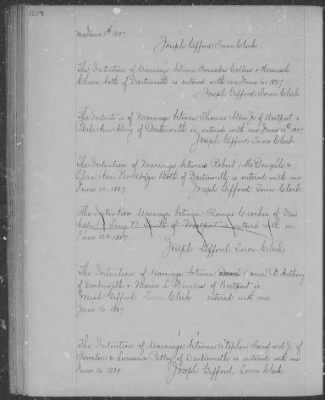 June 1st 1837
Joseph Gifford Town Clerk
The Intention of Marriage between Barnabas Collins & Hannah
Chase both of Dartmouth is entered with me June 6 1837
Joseph Gifford Town Clerk
The Intention of Marriage between Thomas Allen Jr of Westport &
of Dartmouth is entered with me June 10th 1837
Joseph Gifford Town Clerk
The Intention of Marriage between Robert McGonigle &
Both of Dartmouth is entered with me
June 10 1837 Joseph Gifford Town Clerk
The Intention Marriage between Thomas Crocker of New
both of Westport is entered with me
June 1837
Joseph Gifford Town Clerk
The Intention of Marriage between Anthony
of Dartmouth & Maria L of Westport is
Joseph Gifford Town Clerk entered with me
June 12 1837
The Intention of Marriage between Stephen Sanford Jr of
Tiverton & Lurania Potter of Dartmouth is entered with me
June 13 1837 Joseph Gifford Town Clerk